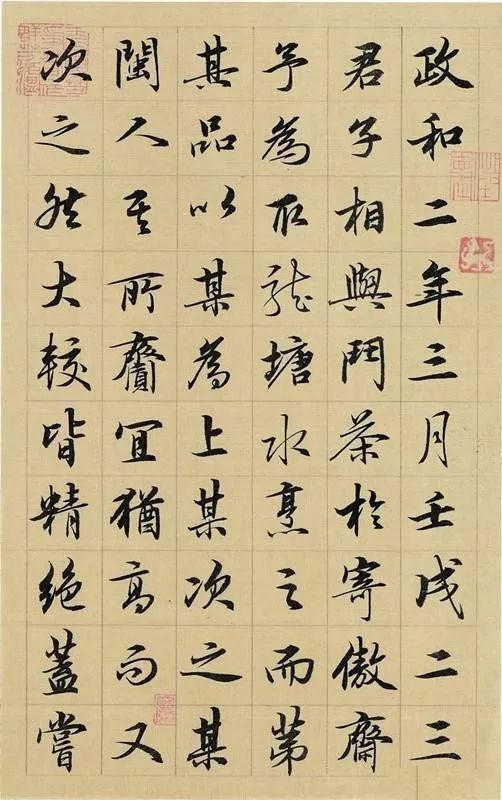 政和二年三月壬戌二三
君子相與鬥茶於寄傲齋
予為取龍塘水烹之而第
其品以某為上某次之某
閩人其所齎宜猶高而又
次之然大較皆精絕蓋嘗